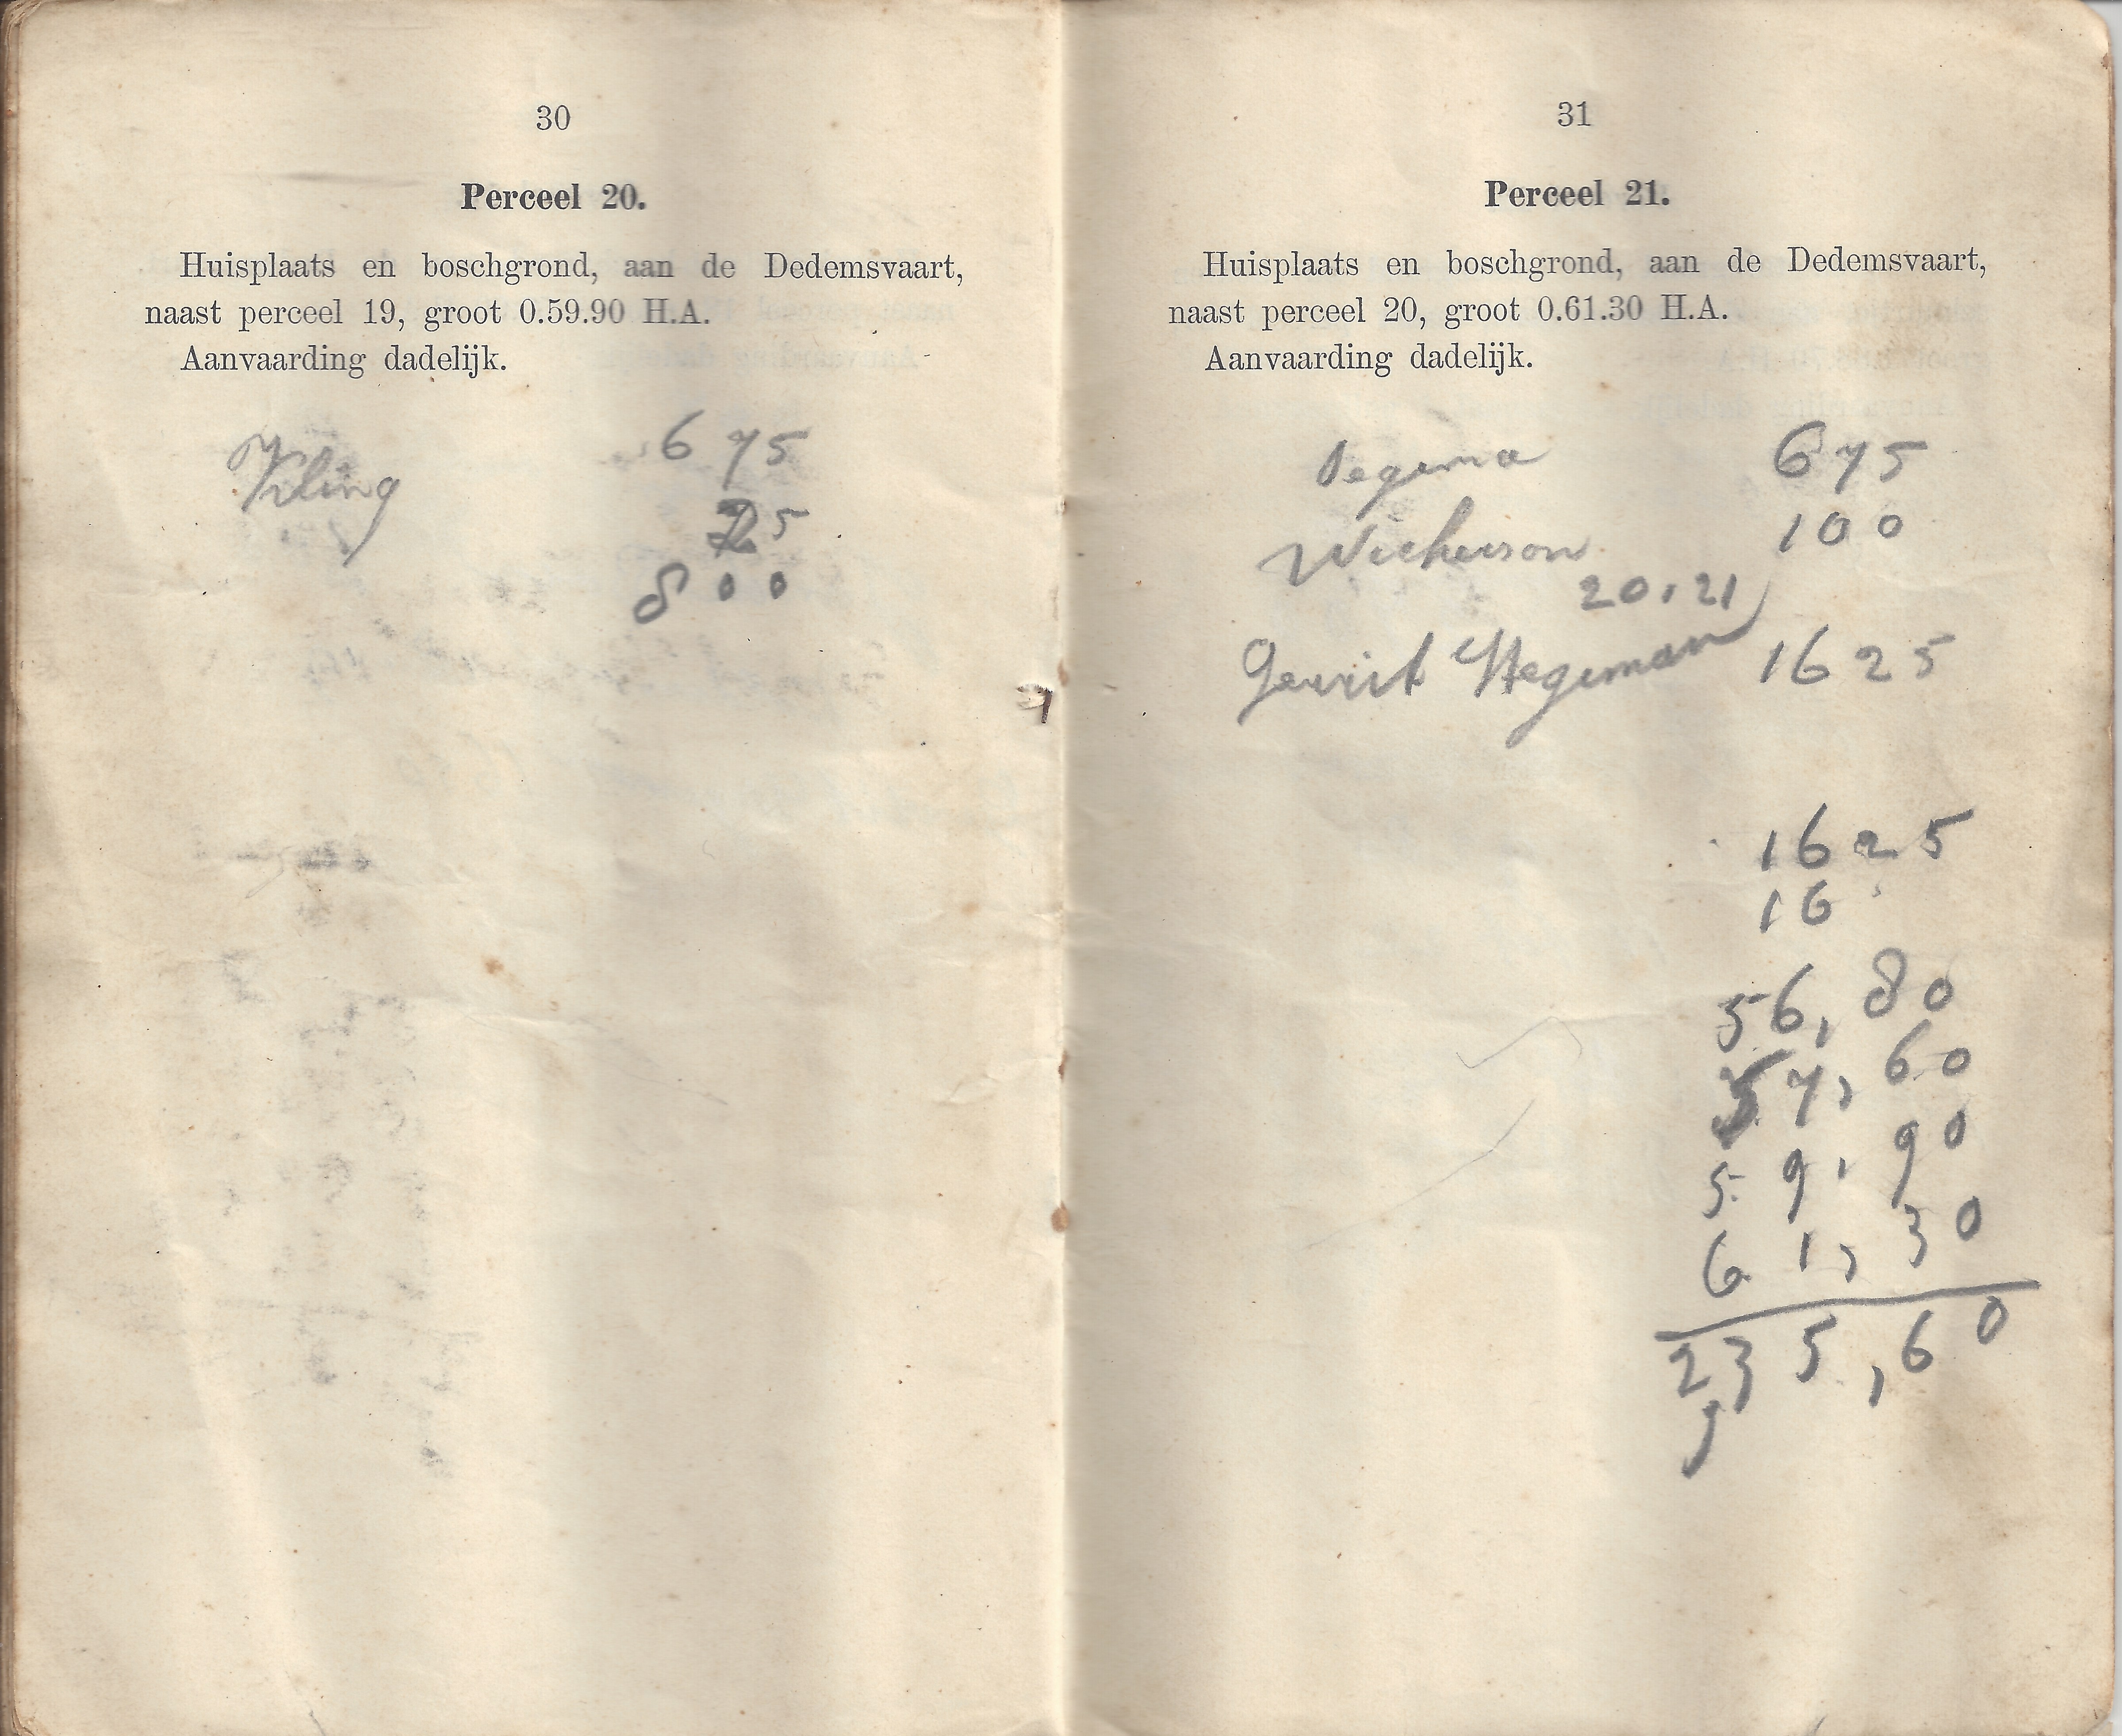 30
Perceel 20.
Huisplaats en boschgrond, aan de Dedemsvaart,
naast perceel 19, groot 0.59.90 H.A.
Aanvaarding dadelijk.
Kling 675
25
800
31
Perceel 21.
Huisplaats en boschgrond, aan de Dedemsvaart,
naast perceel 20, groot 0.61.30 H.A.
Aanvaarding dadelijk.
675
100
20, 21
Gerrit Stegeman 1625
1625
16
56,80
57,60
59,90
61,30
235,60